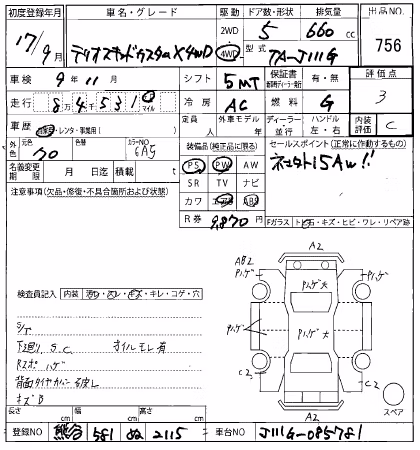 初度登録年月 車名・グレード 駆動 ドア数・形状 排気量 出品NO.
17/9月 テリオスキッドカスタムX4WD 2WD 4WD 5 660 cc
型式 TA-J111G 756
車検 9年11月 シフト 5MT 保証書 有・無 評価点
走行 8万4千531 マイル 冷房 AC 燃料 G 3
車歴 自家用・レンタ・事業用( ) 定員 人 外車モデル 年 ディーラー・並行 ハンドル 左・右 内装評価 C
外色 元色 クロ 色替 カラーNO 6A5 装備品(純正品に限る) セールスポイント(正常に作動するもの)
名義変更期限 月 日迄 積載 t PS PW AW
SR TV ナビ
注意事項(欠品・修復・不具合箇所および状態) カワ エアB ABS
R券 9,870円 Fガラス トビ石・キズ・ヒビ・ワレ・リペア跡
A2
AB2
Pハゲ Pハゲ
Pハゲ大 Pハゲ大
検査員記入 内装 汚レ・スレ・キズ・キレ・コゲ・穴
Pハゲ
S/T
下廻り S.C オイルモレ有
Rスポ ハゲ
C2 C2
背面タイヤカバー 欠品
キズB
A2
スペア
長さ cm 幅 cm 高さ cm
登録NO 熊谷 581 ぬ 2115 車台NO J111G-085781